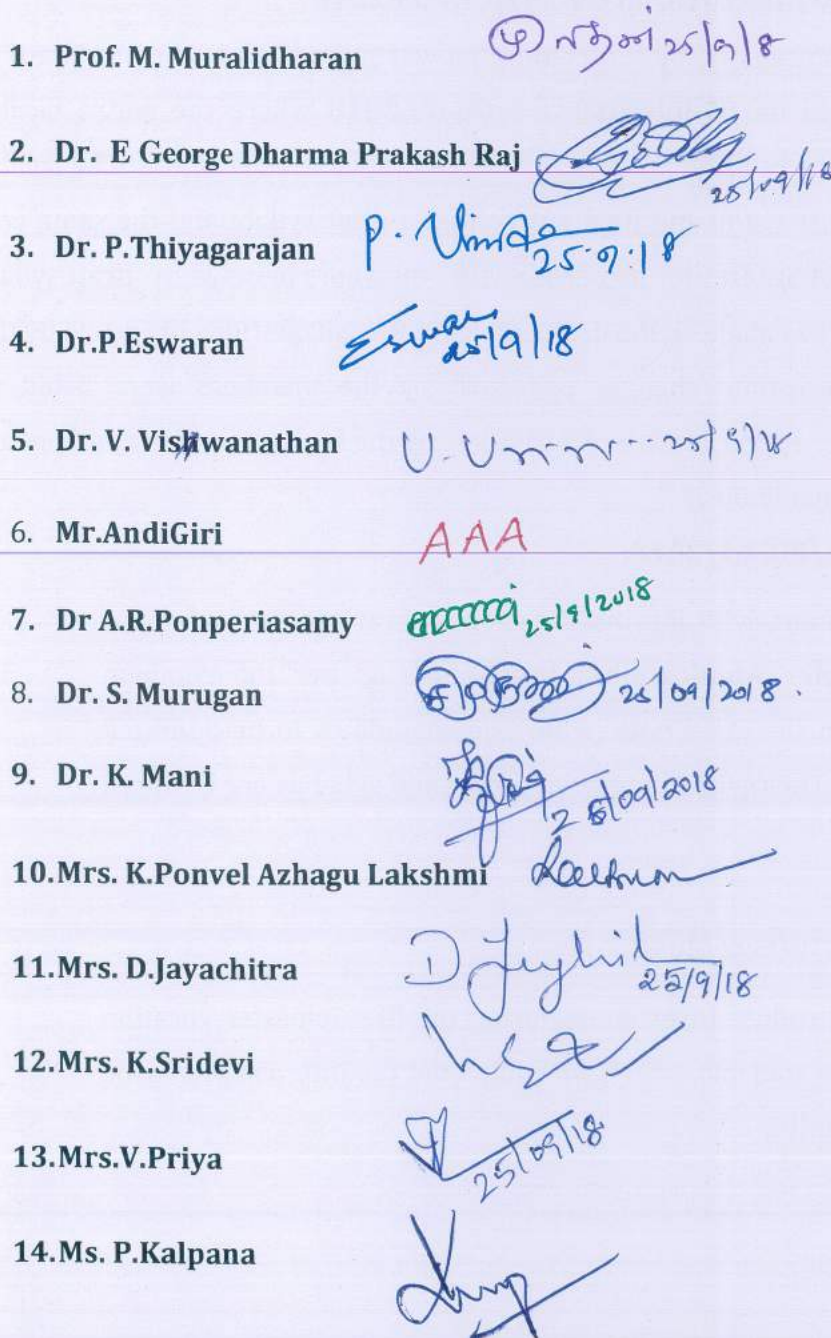 1. Prof. M. Muralidharan 25/9/8
2. Dr. E George Dharma Prakash Raj 25/09/18
3. Dr. P.Thiyagarajan P. 25.9.18
4. Dr.P.Eswaran Eswaran 25/9/18
5. Dr. V. Vishwanathan V. 25/9/18
6. Mr.AndiGiri AAA
7. Dr A.R.Ponperiasamy 25/9/2018
8. Dr. S. Murugan 25/09/2018.
9. Dr. K. Mani 25/09/2018
10.Mrs. K.Ponvel Azhagu Lakshmi
11.Mrs. D.Jayachitra D 25/9/18
12.Mrs. K.Sridevi
13.Mrs.V.Priya 25/09/18
14.Ms. P.Kalpana